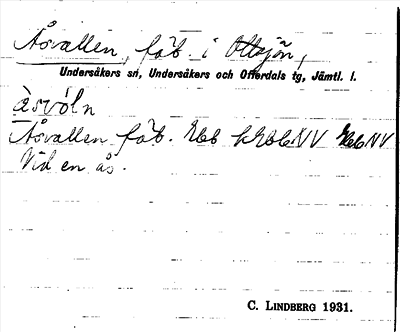 Åsvallen, fäb. i Ottsjön,
Undersåkers sn, Undersåkers och Offerdals tg, Jämtl. l.
àsvóln
Åsvallen fäb.
Vid en ås.
C. LINDBERG 1931.